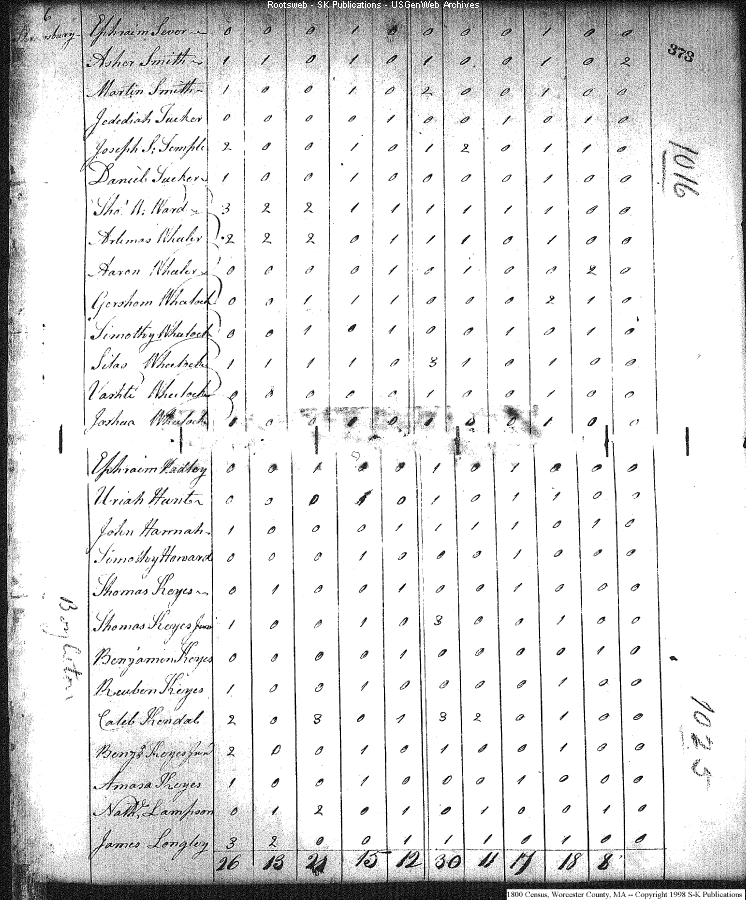 Rootsweb - SK Publications - USGenWeb Archives
6
373
Ephraim Sever 0 0 0 1 0 0 0 0 1 0 0
Asher Smith 1 1 0 1 0 1 0 0 1 0 2
Martin Smith 1 0 0 1 0 2 0 0 1 0 0
Jedediah Tucker 0 0 0 0 1 0 0 1 0 1 0
Joseph S. Temple 2 0 0 1 0 1 2 0 1 1 0
Daniel Tucker 1 0 0 1 0 0 0 0 1 0 0
1016
Tho.s W. Ward 3 2 2 1 1 1 1 1 1 0 0
Artemas Wheeler 2 2 2 0 1 1 1 0 1 0 0
Aaron Wheeler 0 0 0 0 1 0 1 0 0 2 0
Gershom Wheelock 0 0 1 1 1 0 0 0 2 1 0
Timothy Wheelock 0 0 1 0 1 0 0 1 0 1 0
Silas Wheelock 1 1 1 1 0 3 1 0 1 0 0
Vashti Wheelock 0 0 0 0 0 1 0 0 1 0 0
Joshua Wheelock 1 0 0 1 0 1 0 0 1 0 0
Ephraim Hadley 0 0 1 0 0 1 0 1 0 0 0
Uriah Hunt 0 0 0 1 0 1 0 1 1 0 0
John Hannah 1 0 0 0 1 1 1 1 0 1 0
Timothy Howard 0 0 0 1 0 0 0 1 0 0 0
Thomas Keyes 0 1 0 0 1 0 0 1 0 0 0
Boylston
Thomas Keyes Junr 1 0 0 1 0 3 0 0 1 0 0
Benjamin Keyes 0 0 0 0 1 0 0 0 0 1 0
Reuben Keyes 1 0 0 1 0 0 0 0 1 0 0
Caleb Kendal 2 0 3 0 1 3 2 0 1 0 0
1025
Benj.a Keyes Junr 2 0 0 1 0 1 0 0 1 0 0
Amasa Keyes 1 0 0 1 0 0 0 1 0 0 0
Nath.l Lampson 0 1 2 0 1 0 1 0 0 1 0
James Longley 3 2 0 0 1 1 1 0 1 0 0
26 13 21 15 12 30 11 17 18 8
1800 Census, Worcester County, MA -- Copyright 1998 S-K Publications